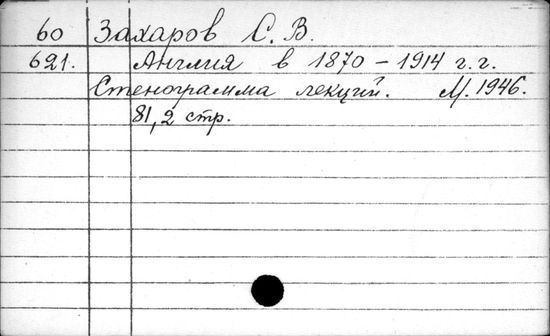 60 Захаров С. В.
621. Англия в 1870 – 1914 г. г.
Стенограмма лекций. М. 1946.
81, 2 стр.